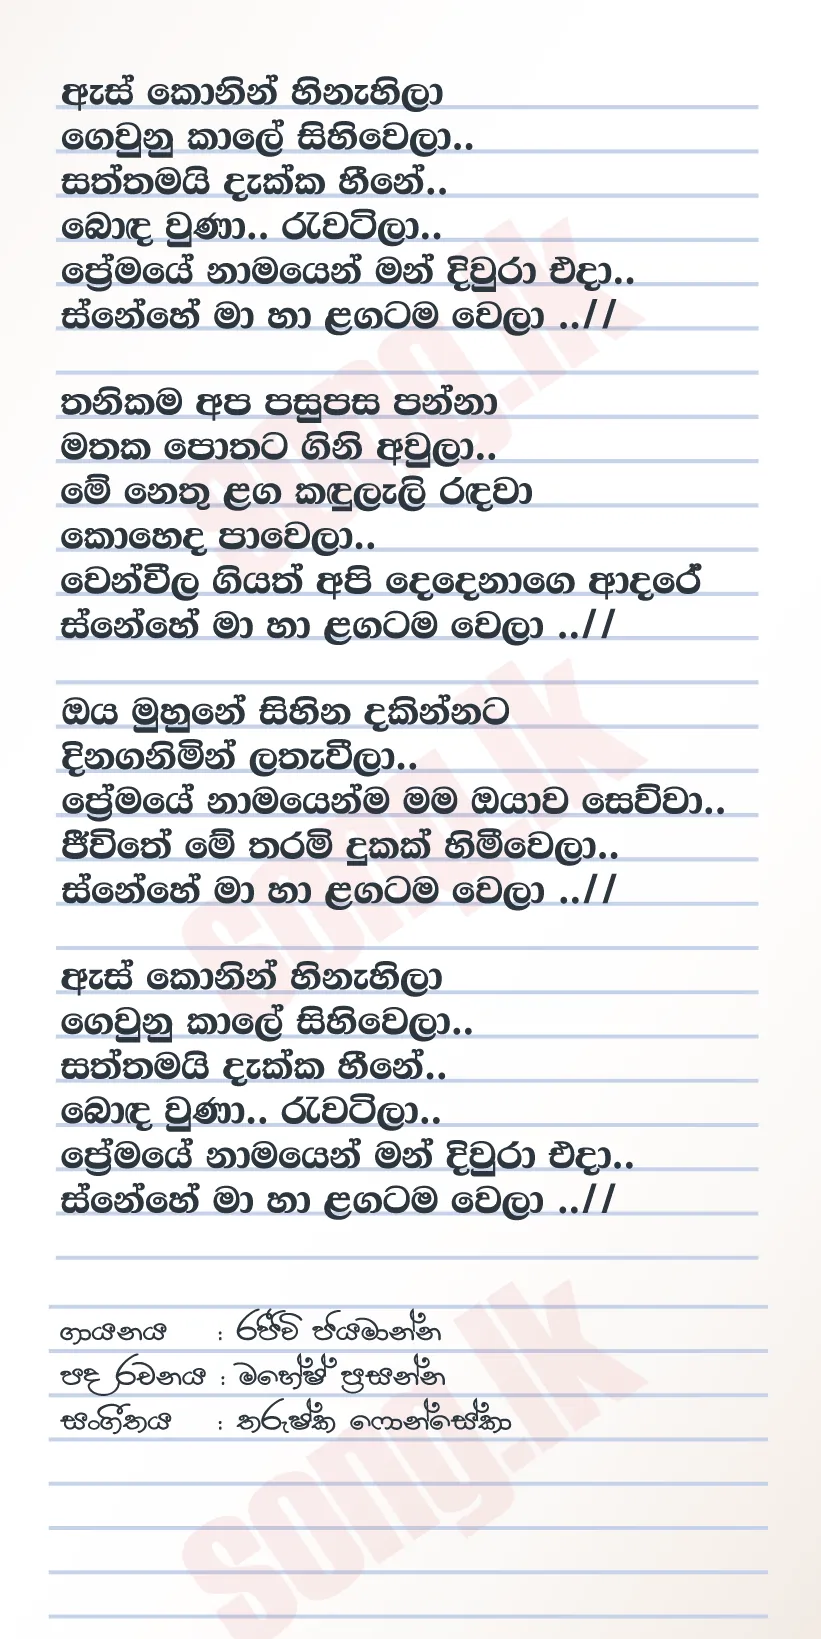 ඇස් කොනින් හිනැහිලා
ගෙවුනු කාලේ සිහිවෙලා..
සත්තමයි දැක්ක හීනේ..
බොඳ වුණා.. රැවටිලා..
ප්‍රේමයේ නාමයෙන් මන් දිවුරා එදා..
ස්නේහේ මා හා ළගටම වෙලා ..//
තනිකම අප පසුපස පන්නා
මතක පොතට ගිනි අවුලා..
මේ නෙතු ළග කඳුලැලි රඳවා
කොහෙද පාවෙලා..
වෙන්වීල ගියත් අපි දෙදෙනාගෙ ආදරේ
ස්නේහේ මා හා ළගටම වෙලා ..//
ඔය මුහුනේ සිහින දකින්නට
දිනගනිමින් ලතැවීලා..
ප්‍රේමයේ නාමයෙන්ම මම ඔයාව සෙව්වා..
ජීවිතේ මේ තරම් දුකක් හිමිවෙලා..
ස්නේහේ මා හා ළගටම වෙලා ..//
ඇස් කොනින් හිනැහිලා
ගෙවුනු කාලේ සිහිවෙලා..
සත්තමයි දැක්ක හීනේ..
බොඳ වුණා.. රැවටිලා..
ප්‍රේමයේ නාමයෙන් මන් දිවුරා එදා..
ස්නේහේ මා හා ළගටම වෙලා ..//
ගායනය : රජීව් ජයමාන්න
පද රචනය : මහේෂ් ප්‍රසන්න
සංගීතය : තරුෂ්ක ෆොන්සේකා
song.lk
song.lk
song.lk